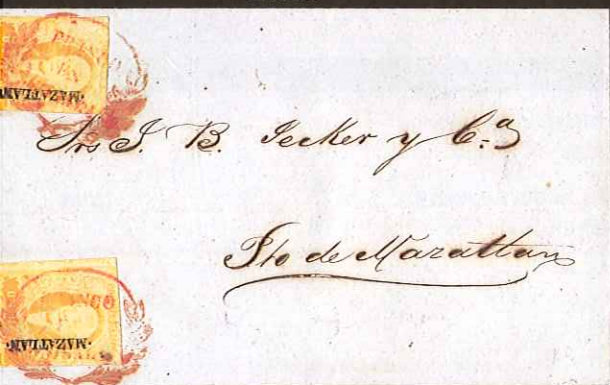 ·MAZATLAN·
Srs J. B. Jecker y C.ª
Pto de Mazatlan
·MAZATLAN·